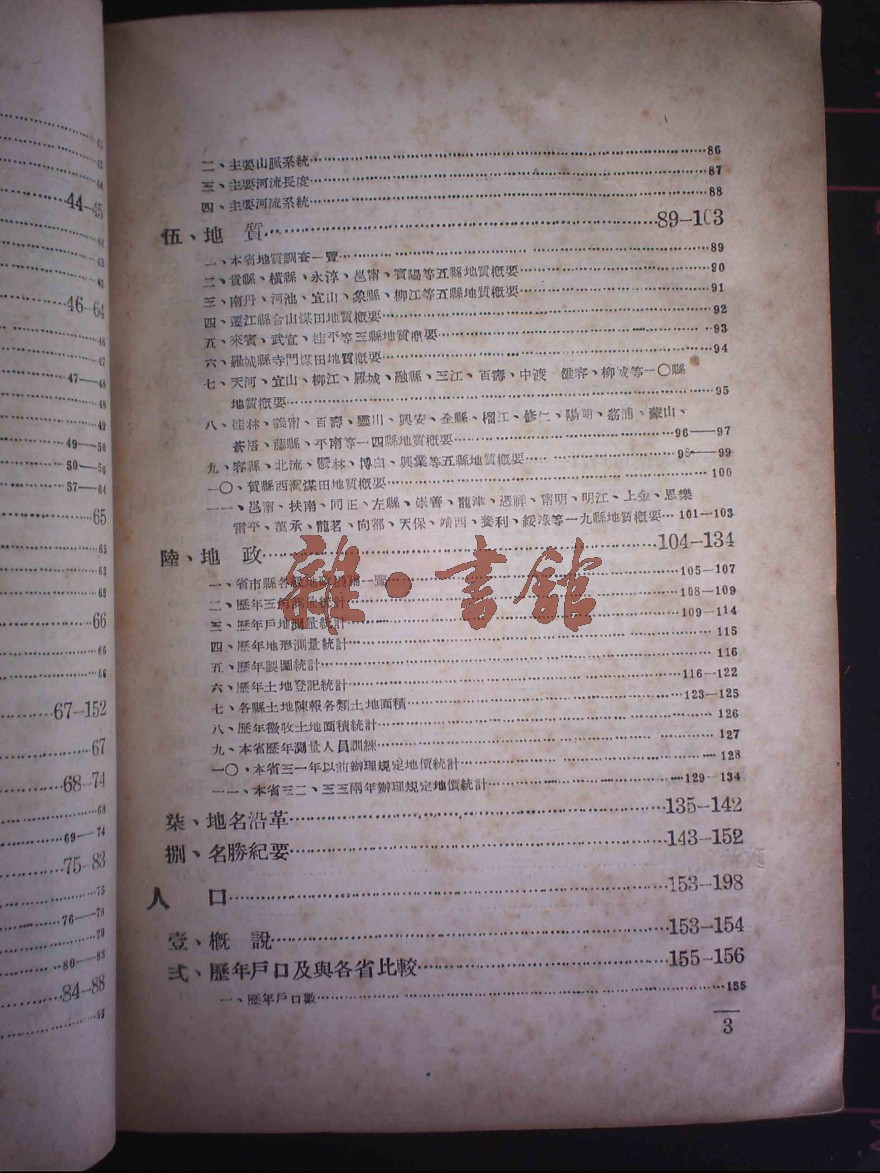 44—45
46—64
47
47—48
48
49
49—50
50—56
57—64
65
65
66
66
67—152
67
68—74
68
69—74
75—83
75
76—78
79
80—83
84—88
二、主要山脈系統 86
三、主要河流長度 87
四、主要河流系統 88
伍、地 質 89—103
一、本省地質調查一覽 89
二、貴縣、橫縣、永淳、邕甯、賓陽等五縣地質概要 90
三、南丹、河池、宜山、象縣、柳江等五縣地質概要 91
四、遷江縣合山煤田地質概要 92
五、來賓、武宣、桂平等三縣地質概要 93
六、羅城縣寺門煤田地質概要 94
七、天河、宜山、柳江、羅城、融縣、三江、百壽、中渡、雒容、柳城等一〇縣
地質概要 95
八、桂林、義甯、百壽、靈川、興安、全縣、榴江、修仁、陽朔、荔浦、蒙山、
蒼梧、藤縣、平南等一四縣地質概要 96—97
九、容縣、北流、鬱林、博白、興業等五縣地質概要 98—99
一〇、賀縣西灣煤田地質概要 100
一一、邕甯、扶南、同正、左縣、崇善、龍津、憑祥、甯明、明江、上金、思樂
雷平、萬承、龍茗、向都、天保、靖西、養利、綏淥等一九縣地質概要 101—103
陸、地 政 104—134
一、省市縣各級地政機構一覽 105—107
二、歷年三角測量統計 108—109
三、歷年戶地測量統計 109—114
四、歷年地形測量統計 115
五、歷年製圖統計 116
六、歷年土地登記統計 116—122
七、各縣土地陳報各類土地面積 123—125
八、歷年徵收土地面積統計 126
九、本省歷年測量人員訓練 127
一〇、本省三一年以前辦理規定地價統計 128
一一、本省三二、三三兩年辦理規定地價統計 129—134
柒、地名沿革 135—142
捌、名勝紀要 143—152
人 口 153—198
壹、概 說 153—154
弍、歷年戶口及與各省比較 155—156
一、歷年戶口數 155
3
雜·書館